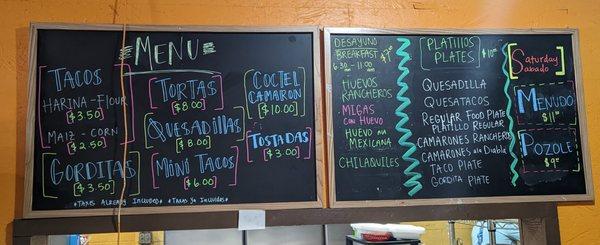 MENU
TACOS
HARINA - FLOUR
$3.50
MAIZ - CORN
$2.50
GORDITAS
$3.50
TORTAS
$8.00
QUESADILLAS
$8.00
MINI TACOS
$6.00
COCTEL
CAMARON
$10.00
TOSTADAS
$3.00
*TAXES ALREADY INCLUDED* *TAXES YA INCLUIDOS*
DESAYUNO
BREAKFAST
6:30 AM - 11:00
HUEVOS
RANCHEROS
MIGAS
CON HUEVO
HUEVO A LA
MEXICANA
CHILAQUILES
PLATILLOS
PLATES
QUESADILLA
QUESATACOS
REGULAR FOOD PLATE
PLATILLO REGULAR
CAMARONES RANCHEROS
CAMARONES ALA DIABLA
TACO PLATE
GORDITA PLATE
SATURDAY
SABADO
MENUDO
POZOLE